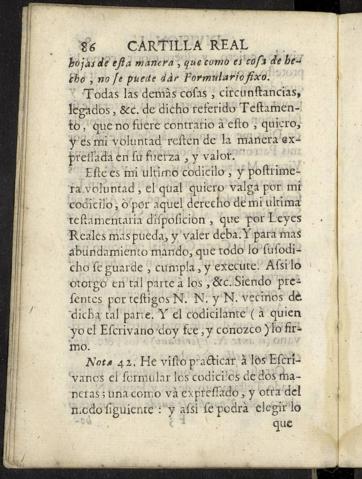 86 CARTILLA REAL
hojas de esta manera, que como es cosa de he-
cho, no se puede dàr Formulario fixo.
Todas las demàs cosas, circunstancias,
legados, &c. de dicho referido Testamen-
to, que no fuere contrario à esto, quiero,
y es mi voluntad resten de la manera ex-
pressada en su fuerza, y valor.
Este es mi ultimo codicilo, y postrime-
ra voluntad, el qual quiero valga por mi
codicilo, ò por aquel derecho de mi ultima
testamentaria disposicion, que por Leyes
Reales mas pueda, y valer deba. Y para mas
abundamiento mando, que todo lo susodi-
cho se guarde, cumpla, y execute. Assi lo
otorgo en tal parte à los, &c. Siendo pre-
sentes por testigos N. N. y N. vecinos de
dicha tal parte. Y el codicilante (à quien
yo el Escrivano doy fee, y conozco) lo fir-
mo.
Nota 42. He visto practicar à los Escri-
vanos el formular los codicilos de dos ma-
neras: una como và expressado, y otra del
modo siguiente: y assi se podrà elegir lo
que